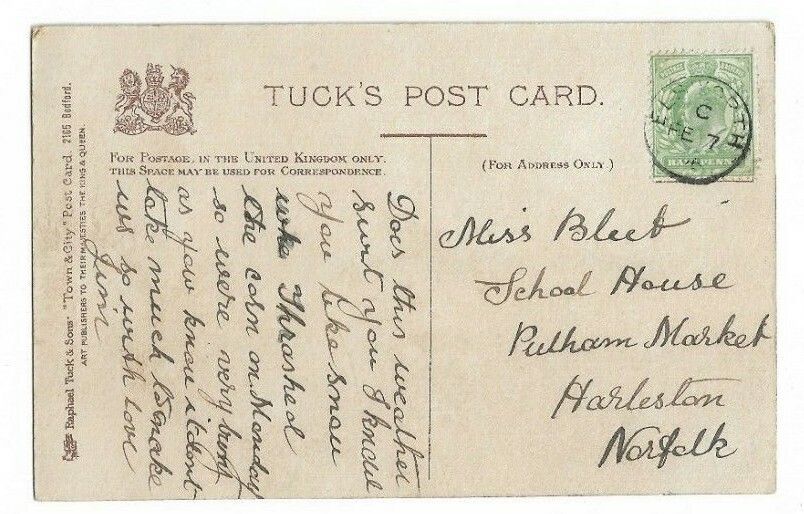 TUCK'S POST CARD.
FOR POSTAGE, IN THE UNITED KINGDOM ONLY.
THIS SPACE MAY BE USED FOR CORRESPONDENCE.
(FOR ADDRESS ONLY.)
Does this weather
suit you I know
you like snow
wke Thrashed
the corn on Monday
so were very busy
as you know it dont
take much to make
us so with love
Jim
Miss Bleet
School House
Pulham Market
Harleston
Norfolk
Raphael Tuck & Sons' "Town & City" Post Card. 2166 Bedford.
ART PUBLISHERS TO THEIR MAJESTIES THE KING & QUEEN.
C
FE 7
HALFPENNY